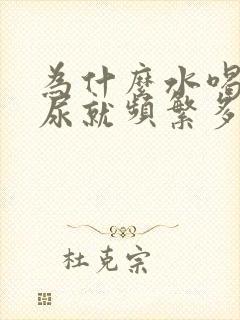 為什麼水喝
尿就頻繁多
杜克宗